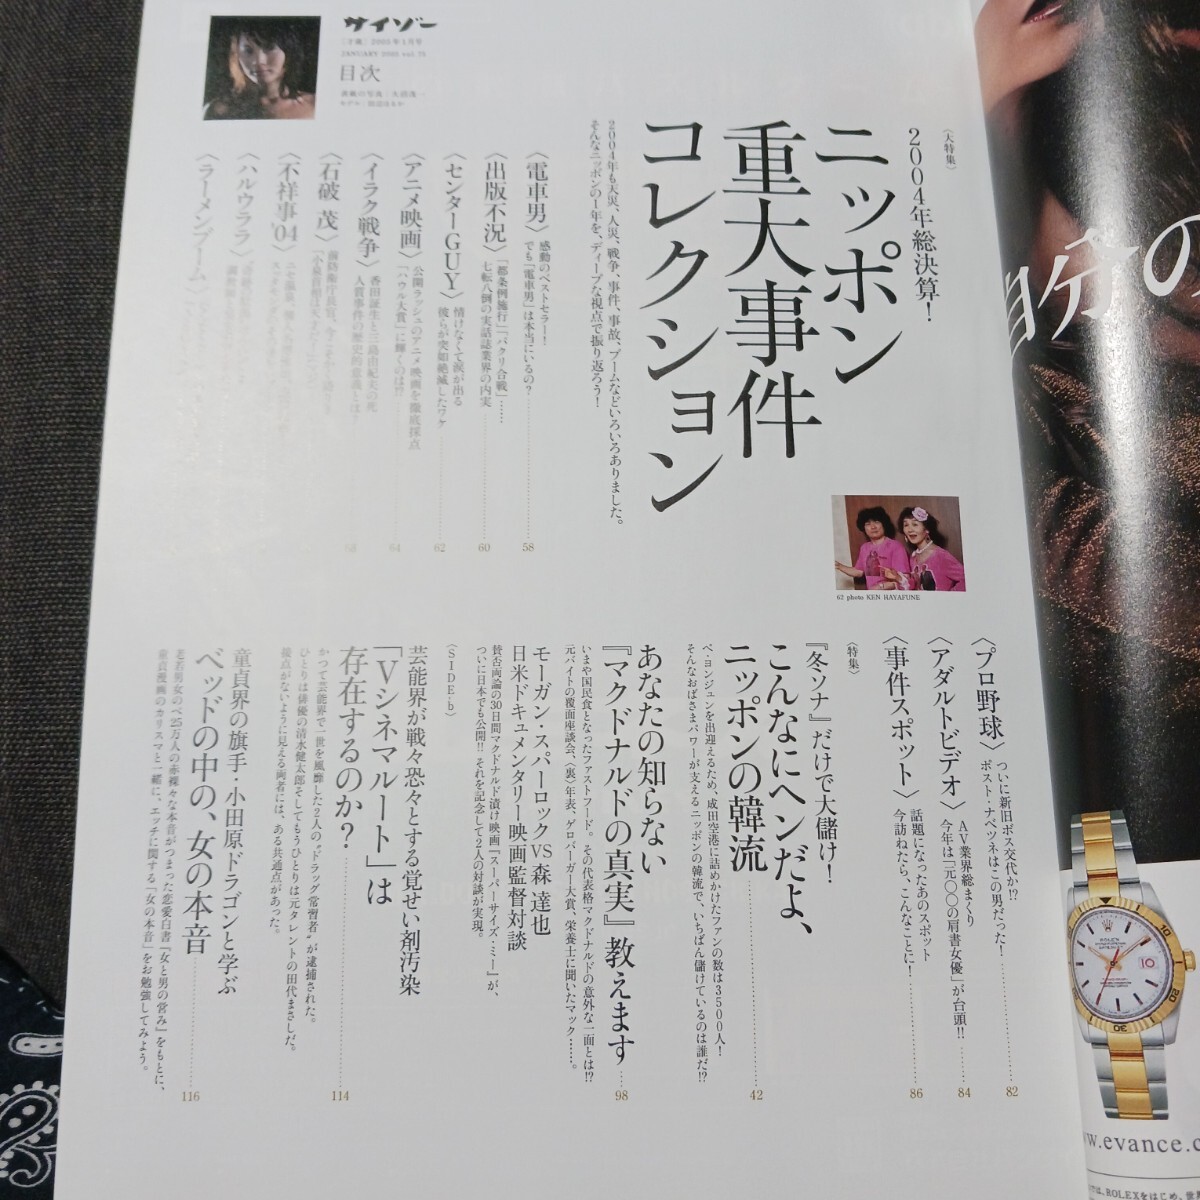 サイゾー
2005年1月号
JANUARY 2005 vol.75
目次
〈大特集〉
2004年総決算！
ニッポン
重大事件
コレクション
2004年も天災、人災、戦争、事件、事故、ブームなどいろいろありました。
そんなニッポンの1年を、ディープな視点で振り返ろう！
〈電車男〉
感動のベストセラー！
でも「電車男」は本当にいるの？
58
〈出版不況〉
「都条例施行」「パクリ合戦」……
七転八倒の実話誌業界の内実
60
〈センターGUY〉
情けなくて涙が出る
彼らが突如絶滅したワケ
62
〈アニメ映画〉
公開ラッシュのアニメ映画を徹底採点
「ハウル大賞」に輝くのは!?
64
〈イラク戦争〉
香田証生と三島由紀夫の死
人質事件の歴史的意義とは？
〈石破 茂〉
〈不祥事'04〉
〈ハルウララ〉
〈ラーメンブーム〉
62 photo KEN HAYAFUNE
〈プロ野球〉
ついに新旧ボス交代か!?
ポスト・ナベツネはこの男だった！
82
〈アダルトビデオ〉
AV業界総まくり
今年は「元〇〇の肩書女優」が台頭!!
84
〈事件スポット〉
話題になったあのスポット
今訪ねたら、こんなことに！
86
〈特集〉
『冬ソナ』だけで大儲け！
こんなにヘンだよ、
ニッポンの韓流
42
ペ・ヨンジュンを出迎えるため、成田空港に詰めかけたファンの数は3500人！
そんなおばさまパワーが支えるニッポンの韓流で、いちばん儲けているのは誰だ!?
あなたの知らない
『マクドナルドの真実』教えます
98
いまや国民食となったファストフード。その代表格・マクドナルドの意外な一面とは!?
元バイトの覆面座談会、〈裏〉年表、ゲロバーガー大賞、栄養士に聞いたマック……。
モーガン・スパーロックVS森 達也
日米ドキュメンタリー映画監督対談
賛否両論の30日間マクドナルド漬け映画『スーパーサイズ・ミー』が、
ついに日本でも公開!! それを記念して2人の対談が実現。
〈SIDE-b〉
芸能界が戦々恐々とする覚せい剤汚染
「Vシネマルート」は
存在するのか？
114
かつて芸能界で一世を風靡した2人の"ドラッグ常習者"が逮捕された。
ひとりは俳優の清水健太郎そしてもうひとりは元タレントの田代まさしだ。
接点がないように見える両者には、ある共通点があった。
童貞界の旗手・小田原ドラゴンと学ぶ
ベッドの中の、女の本音
116
老若男女のべ25万人の赤裸々な本音がつまった恋愛白書『女と男の営み』をもとに、
童貞漫画のカリスマと一緒に、エッチに関する「女の本音」をお勉強してみよう。
自分の
ROLEX
www.evance.c
ROLEXをはじめ、